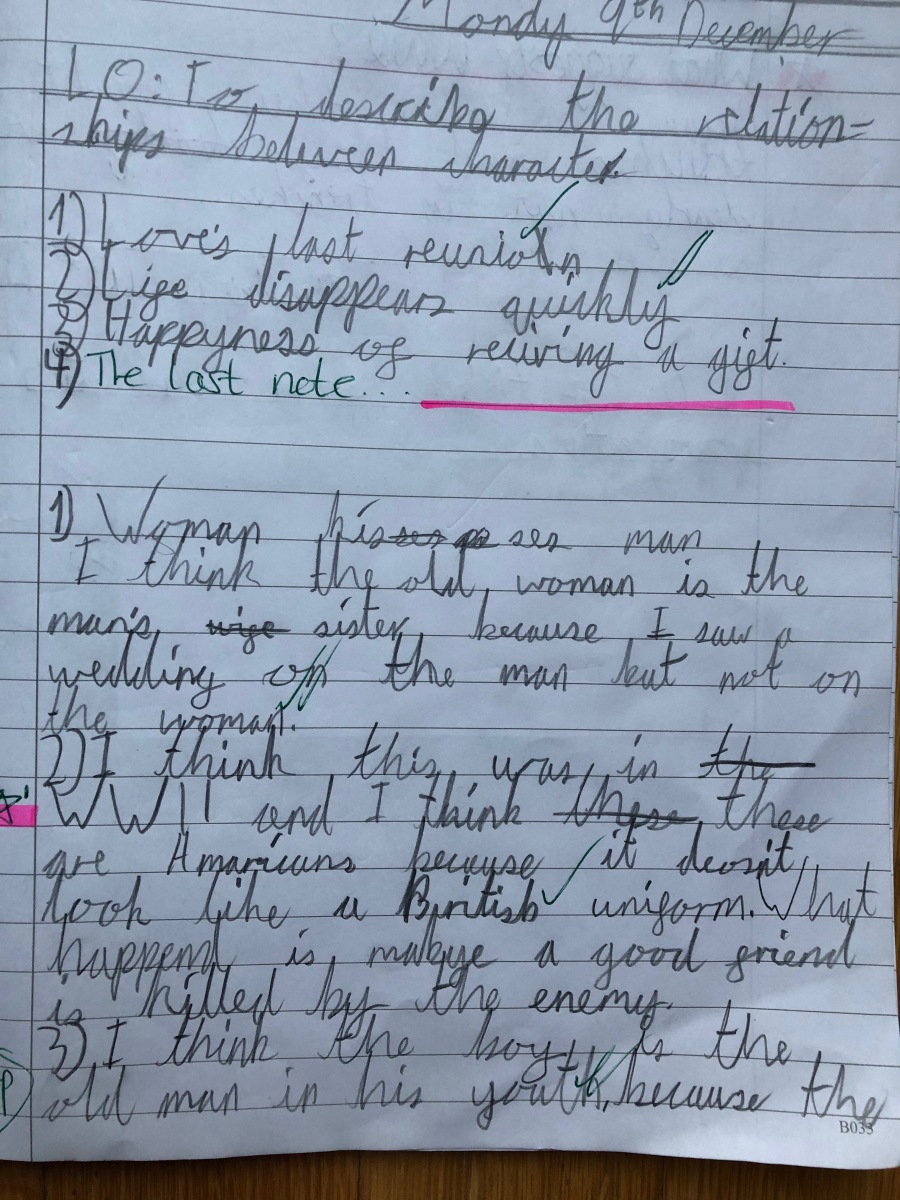 Mondy 9th December
LO: To describe the relation=
ships between character.
1) Love's last reunion
2) Life disappears quickly
3) Happyness of reliving a gift.
4) The last note....
1) Woman kisses man
I think the old woman is the
man's wife sister because I saw a
wedding on the man but not on
the woman.
2) I think this was in the
WWII and I think these these
are Amaricans because it deosn't
look like a British uniform. What
happend is mabye a good friend
is killed by the enemy.
3) I think the boy is the
old man in his youth, because the
B033